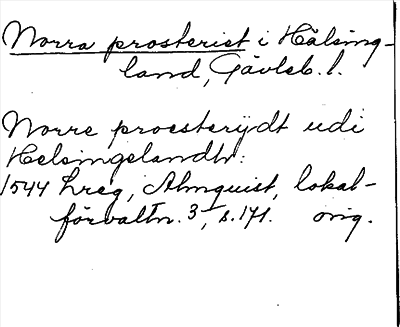 Norra prosteriet i Hälsing-
land, Gävleb. l.
Norre proesterijdt udi
Helsingelandtn:
1544 Lreg, Almquist, lokal-
förvaltn. 3, s. 171. orig.